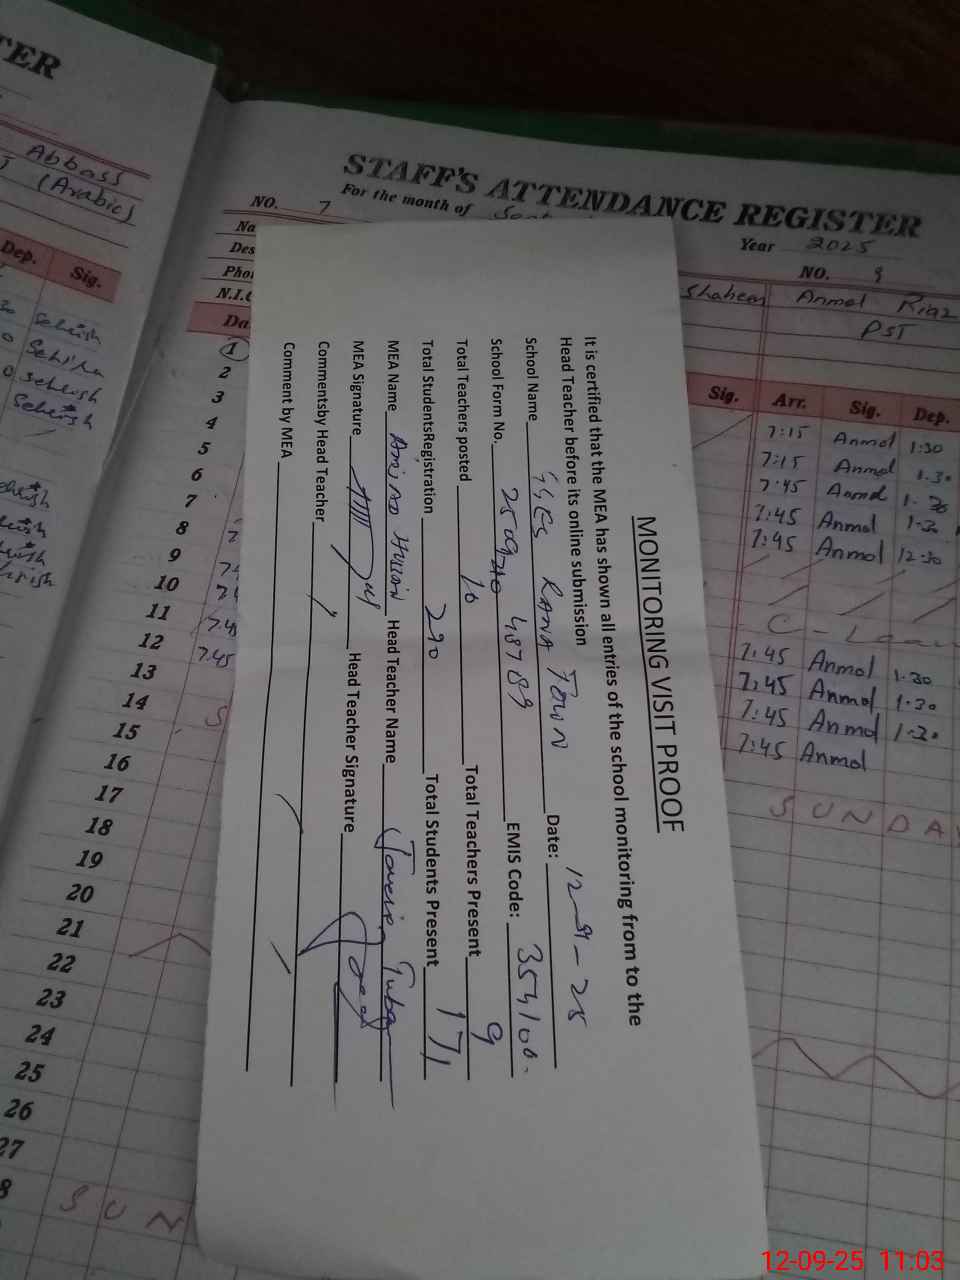 TER
Abbass
(Arabic)
Dep. Sig.
STAFF'S ATTENDANCE REGISTER
For the month of
Year 2025
NO. 7
NO. 9
Shaheen
Anmol Riaz
PST
N.I.C
Sig. Arr. Sig. Dep.
7:15 Anmol 1:30
7:15 Anmol 1.30
7:45 Anmol 1.30
7:45 Anmol 1.30
7:45 Anmol 12:30
7:45 Anmol 1.30
7:45 Anmol 1.30
7:45 Anmol 1.30
7:45 Anmol
SUNDA
1
2
3
4
5
6
7
8
9
10
11 7.45
12 7.45
13
14 S
15
16
17
18
19
20
21
22
23
24
25
26
27
8 SUN
MONITORING VISIT PROOF
It is certified that the MEA has shown all entries of the school monitoring from to the
Head Teacher before its online submission
School Name GGES RANA TOWN Date: 12-09-25
School Form No. 48789 EMIS Code: 354100
Total Teachers posted 10 Total Teachers Present 9
Total StudentsRegistration 290 Total Students Present 171
MEA Name Amjad Hussain Head Teacher Name
MEA Signature Head Teacher Signature
Commentsby Head Teacher
Comment by MEA
12-09-25 11:03